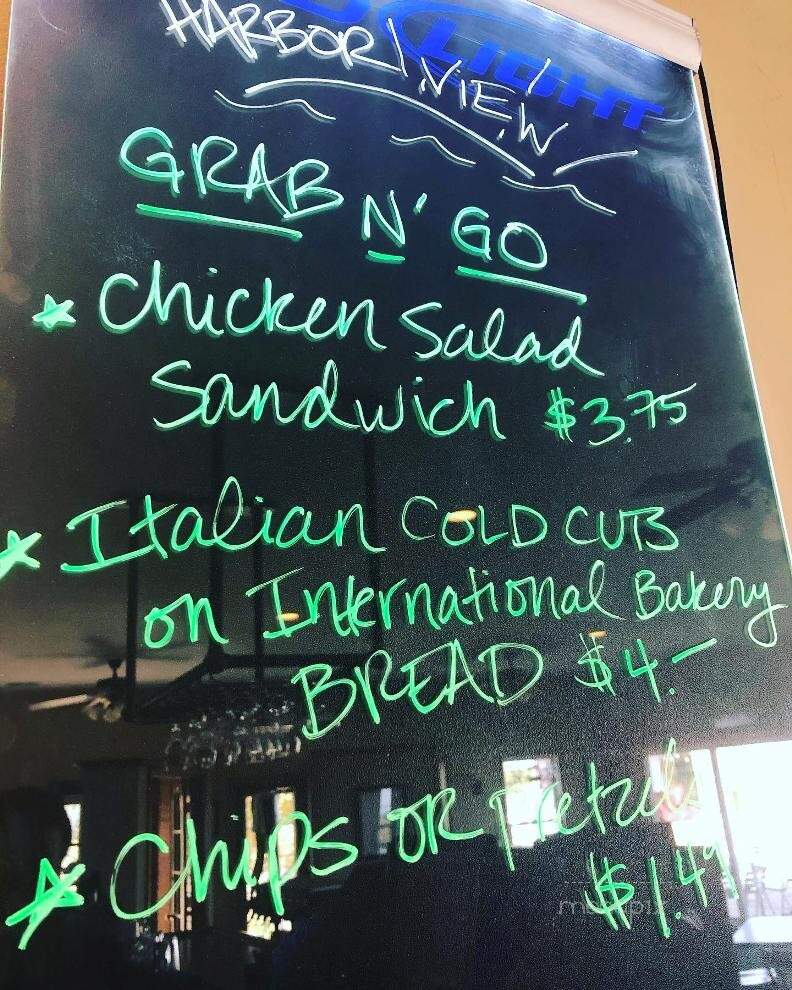 LIGHT
HARBOR VIEW
GRAB N' GO
Chicken Salad
Sandwich $3.75
Italian COLD CUTS
on International Bakery
BREAD $4.-
Chips OR Pretzels
$1.49